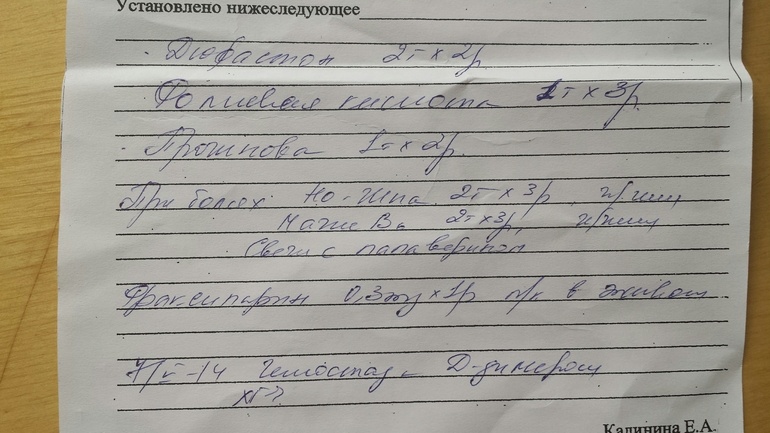 Установлено нижеследующее
Дюфастон 2т х 2р
Фолиевая кислота 1т х 3р.
Прогинова 1т х 2р.
При болях: Но-шпа 2т х 3р
Магне В6 2т х 3р,
Свечи с папаверином
Фраксипарин 0,3 х 1р п/к в живот
Гемостаз с Д-димером
Калинина Е.А.